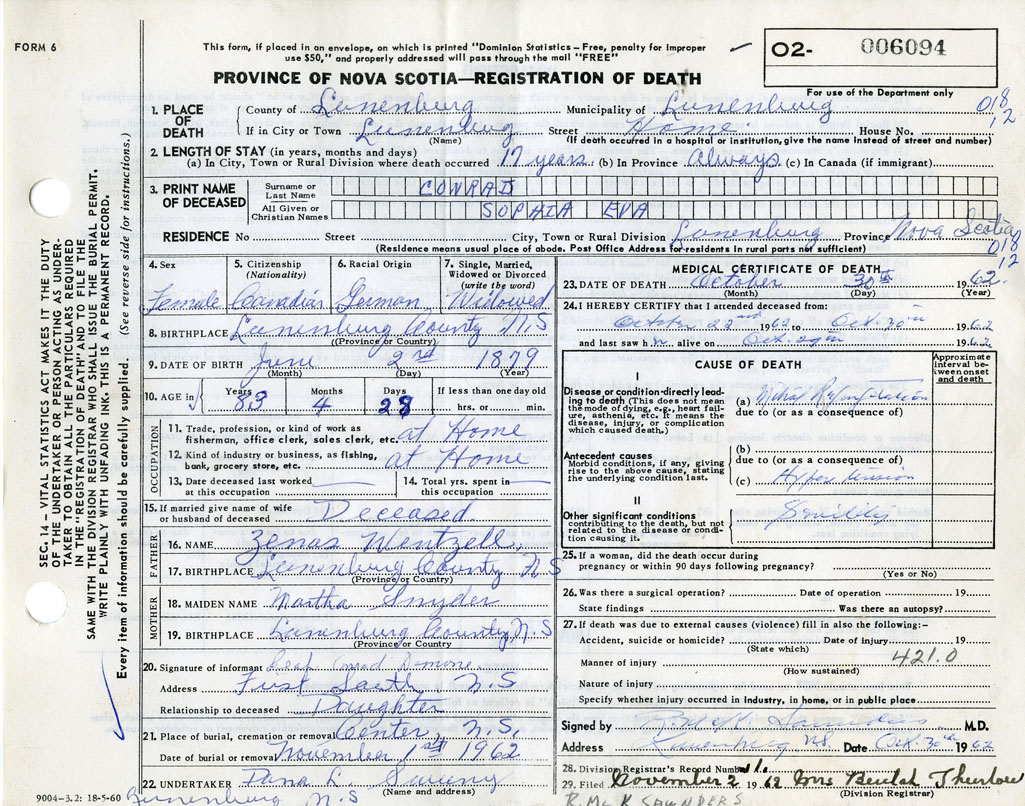 FORM 6
This form, if placed in an envelope, on which is printed "Dominion Statistics – Free, penalty for improper
use $50," and properly addressed will pass through the mail "FREE"
O2- 006094
For use of the Department only
PROVINCE OF NOVA SCOTIA—REGISTRATION OF DEATH
018
12
1. PLACE OF DEATH
County of Lunenburg Municipality of Lunenburg
If in City or Town Lunenburg Street Home House No.
(Name) (If death occurred in a hospital or institution, give the name instead of street and number)
2. LENGTH OF STAY (in years, months and days)
(a) In City, Town or Rural Division where death occurred 17 years (b) In Province Always (c) In Canada (if immigrant)
3. PRINT NAME OF DECEASED
Surname or Last Name CONRAD
All Given or Christian Names SOPHIA EVA
RESIDENCE No Street City, Town or Rural Division Lunenburg Province Nova Scotia
(Residence means usual place of abode. Post Office Address for residents in rural parts not sufficient)
018
12
4. Sex Female
5. Citizenship (Nationality) Canadian
6. Racial Origin German
7. Single, Married, Widowed or Divorced (write the word) Widowed
8. BIRTHPLACE Lunenburg County N.S
(Province or Country)
9. DATE OF BIRTH June 2nd 1879
(Month) (Day) (Year)
10. AGE in Years 83 Months 4 Days 28 If less than one day old hrs. or min.
OCCUPATION
11. Trade, profession, or kind of work as fisherman, office clerk, sales clerk, etc. at Home
12. Kind of industry or business, as fishing, bank, grocery store, etc. at Home
13. Date deceased last worked at this occupation
14. Total yrs. spent in this occupation
15. If married give name of wife or husband of deceased Deceased
FATHER
16. NAME Zenas Wentzell
17. BIRTHPLACE Lunenburg County N S
(Province or Country)
MOTHER
18. MAIDEN NAME Martha Snyder
19. BIRTHPLACE Lunenburg County, N.S
(Province or Country)
20. Signature of informant Conrad
Address First South N.S
Relationship to deceased Daughter
21. Place of burial, cremation or removal Center, N.S.
Date of burial or removal November 1st 1962
22. UNDERTAKER Dana L. Sweeny
(Name and address)
Lunenburg N.S
9004-3.2: 18-5-60
MEDICAL CERTIFICATE OF DEATH
23. DATE OF DEATH October 30th 1962
(Month) (Day) (Year)
24. I HEREBY CERTIFY that I attended deceased from:
October 22nd 1962 to Oct. 30th 1962
and last saw h alive on Oct. 29th 1962
CAUSE OF DEATH
Approximate interval between onset and death
I
Disease or condition directly leading to death (This does not mean the mode of dying, e.g., heart failure, asthenia, etc. It means the disease, injury, or complication which caused death.)
(a) Mitral Regurgitation
due to (or as a consequence of)
Antecedent causes
Morbid conditions, if any, giving rise to the above cause, stating the underlying condition last.
(b)
due to (or as a consequence of)
(c) Hypertension
II
Other significant conditions
contributing to the death, but not related to the disease or condition causing it.
Senility
25. If a woman, did the death occur during pregnancy or within 90 days following pregnancy?
(Yes or No)
26. Was there a surgical operation? Date of operation 19
State findings Was there an autopsy?
27. If death was due to external causes (violence) fill in also the following:-
Accident, suicide or homicide? Date of injury 19
(State which)
421.0
Manner of injury
(How sustained)
Nature of injury
Specify whether injury occurred in industry, in home, or in public place
Signed by R. McK. Saunders M.D.
Address Lunenburg NS. Date Oct. 30th 1962
28. Division Registrar's Record Number
29. Filed November 2 1962 Mrs Beulah Thurlow
(Division Registrar)
R. McK SAUNDERS
SEC. 14 – VITAL STATISTICS ACT MAKES IT THE DUTY
OF THE UNDERTAKER OR PERSON ACTING AS UNDER-
TAKER TO OBTAIN ALL THE PARTICULARS REQUIRED
IN THE "REGISTRATION OF DEATH" AND TO FILE THE
SAME WITH THE DIVISION REGISTRAR WHO SHALL ISSUE THE BURIAL PERMIT.
WRITE PLAINLY WITH UNFADING INK. THIS IS A PERMANENT RECORD.
Every item of information should be carefully supplied. (See reverse side for instructions.)